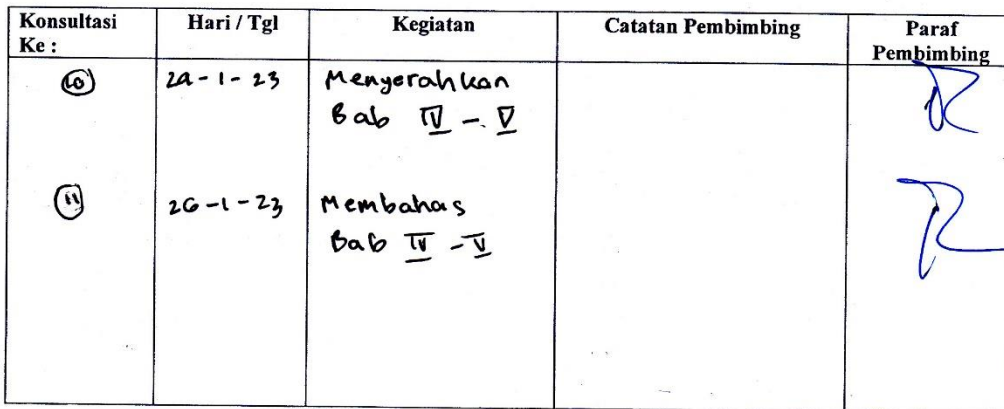 Konsultasi Ke : Hari / Tgl Kegiatan Catatan Pembimbing Paraf Pembimbing
10 24-1-23 Menyerahkan
Bab IV - V
11 26-1-23 Membahas
Bab IV - V